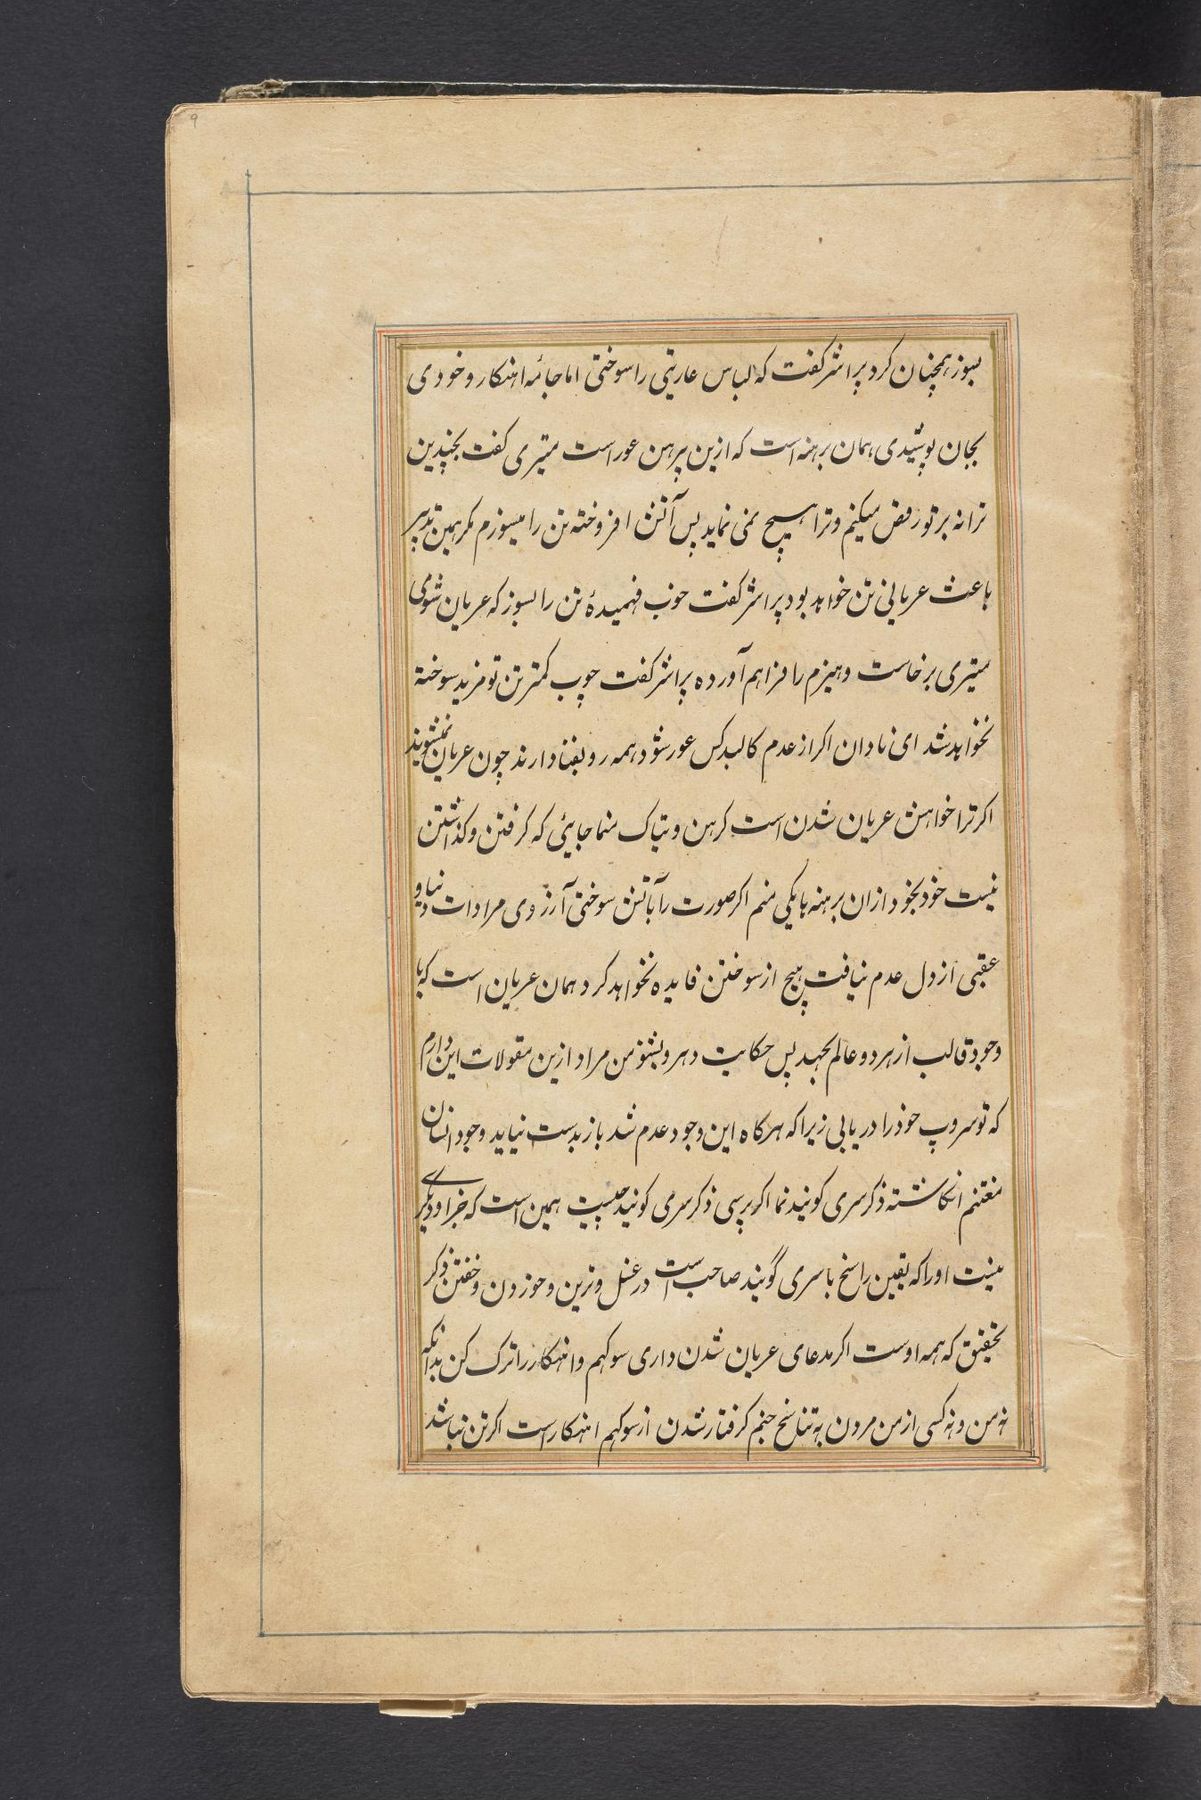 ۹
بسوز همچنان کرد پراشر کفت که لباس عاریتی را سوختی اما جامهٔ اهنکار و خودی
بجان پوشیدی همان برهنه است که ازین پرهن عور است میتری کفت بچندین
ترانه بر تو رقص میکنم و ترا هیچ نمی نماید پس آتش افروخته تن را میسوزم مکر همین تدبیر
باعث عریانی تن خواهد بود پراشر کفت خوب فهمیدهٔ تن را بسوز که عریان شوی
میتری برخاست و هیزم را فراهم آورده پراشر کفت چوب کمتر تن تو مزید سوخته
نخواهد شد ای نادان اکر از عدم کالبد کس عور شود همه رو بفنا دارند چون عریان نمیشوند
اکر ترا خواهش عریان شدن است کرهن و تیاک منما جایی که کرفتن و کذاشتن
نیست خود بخود ازان برهنه بایکی منم اکر صورت را بآتش سوختی آرزوی مرادات دنیا و
عقبی از دل عدم نیافت هیچ از سوختن فایده نخواهد کرد همان عریان است که با
وجود قالب از هر دو عالم بجهد پس حکایت دهرو بشنو من مراد ازین مقولات این دارم
که تو سروپ خود را دریابی زیرا که هرکاه این وجود عدم شد باز بدست نیاید وجود انسان
مغتنم انکاشته ذکر سری کویند نما اکر پرسی ذکر سری کویند چیست همین است که جز او دیکری
نیست اورا که یقین راسخ با سری گویند صاحب است در غسل و زین و خوردن و خفتن ذکر
بحقیق که همه اوست اکر مدعای عریان شدن داری سوکهم و اهنکار را ترک کن بدانکه
نه من و نه کسی از من مردن به تناسخ جنم کرفتار شدن از سوکهم اهنکار است اکر تن نباشد